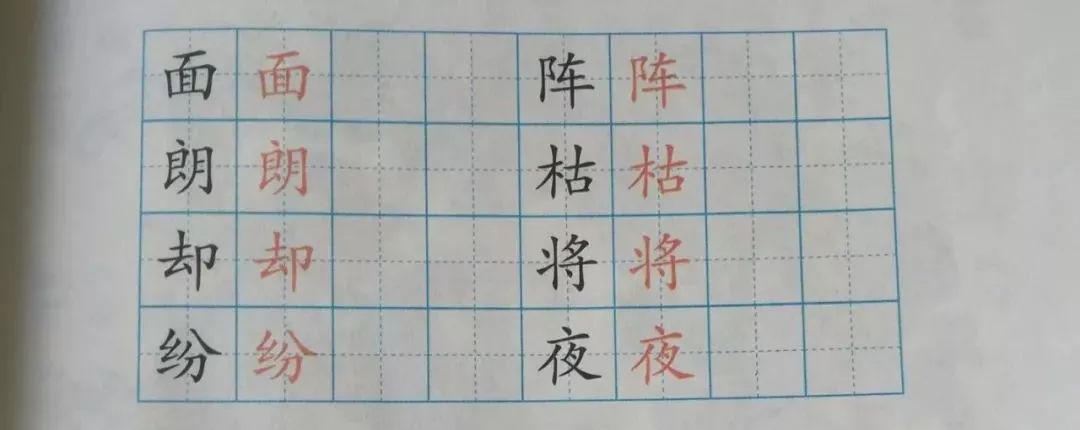 面 面 阵 阵
朗 朗 枯 枯
却 却 将 将
纷 纷 夜 夜